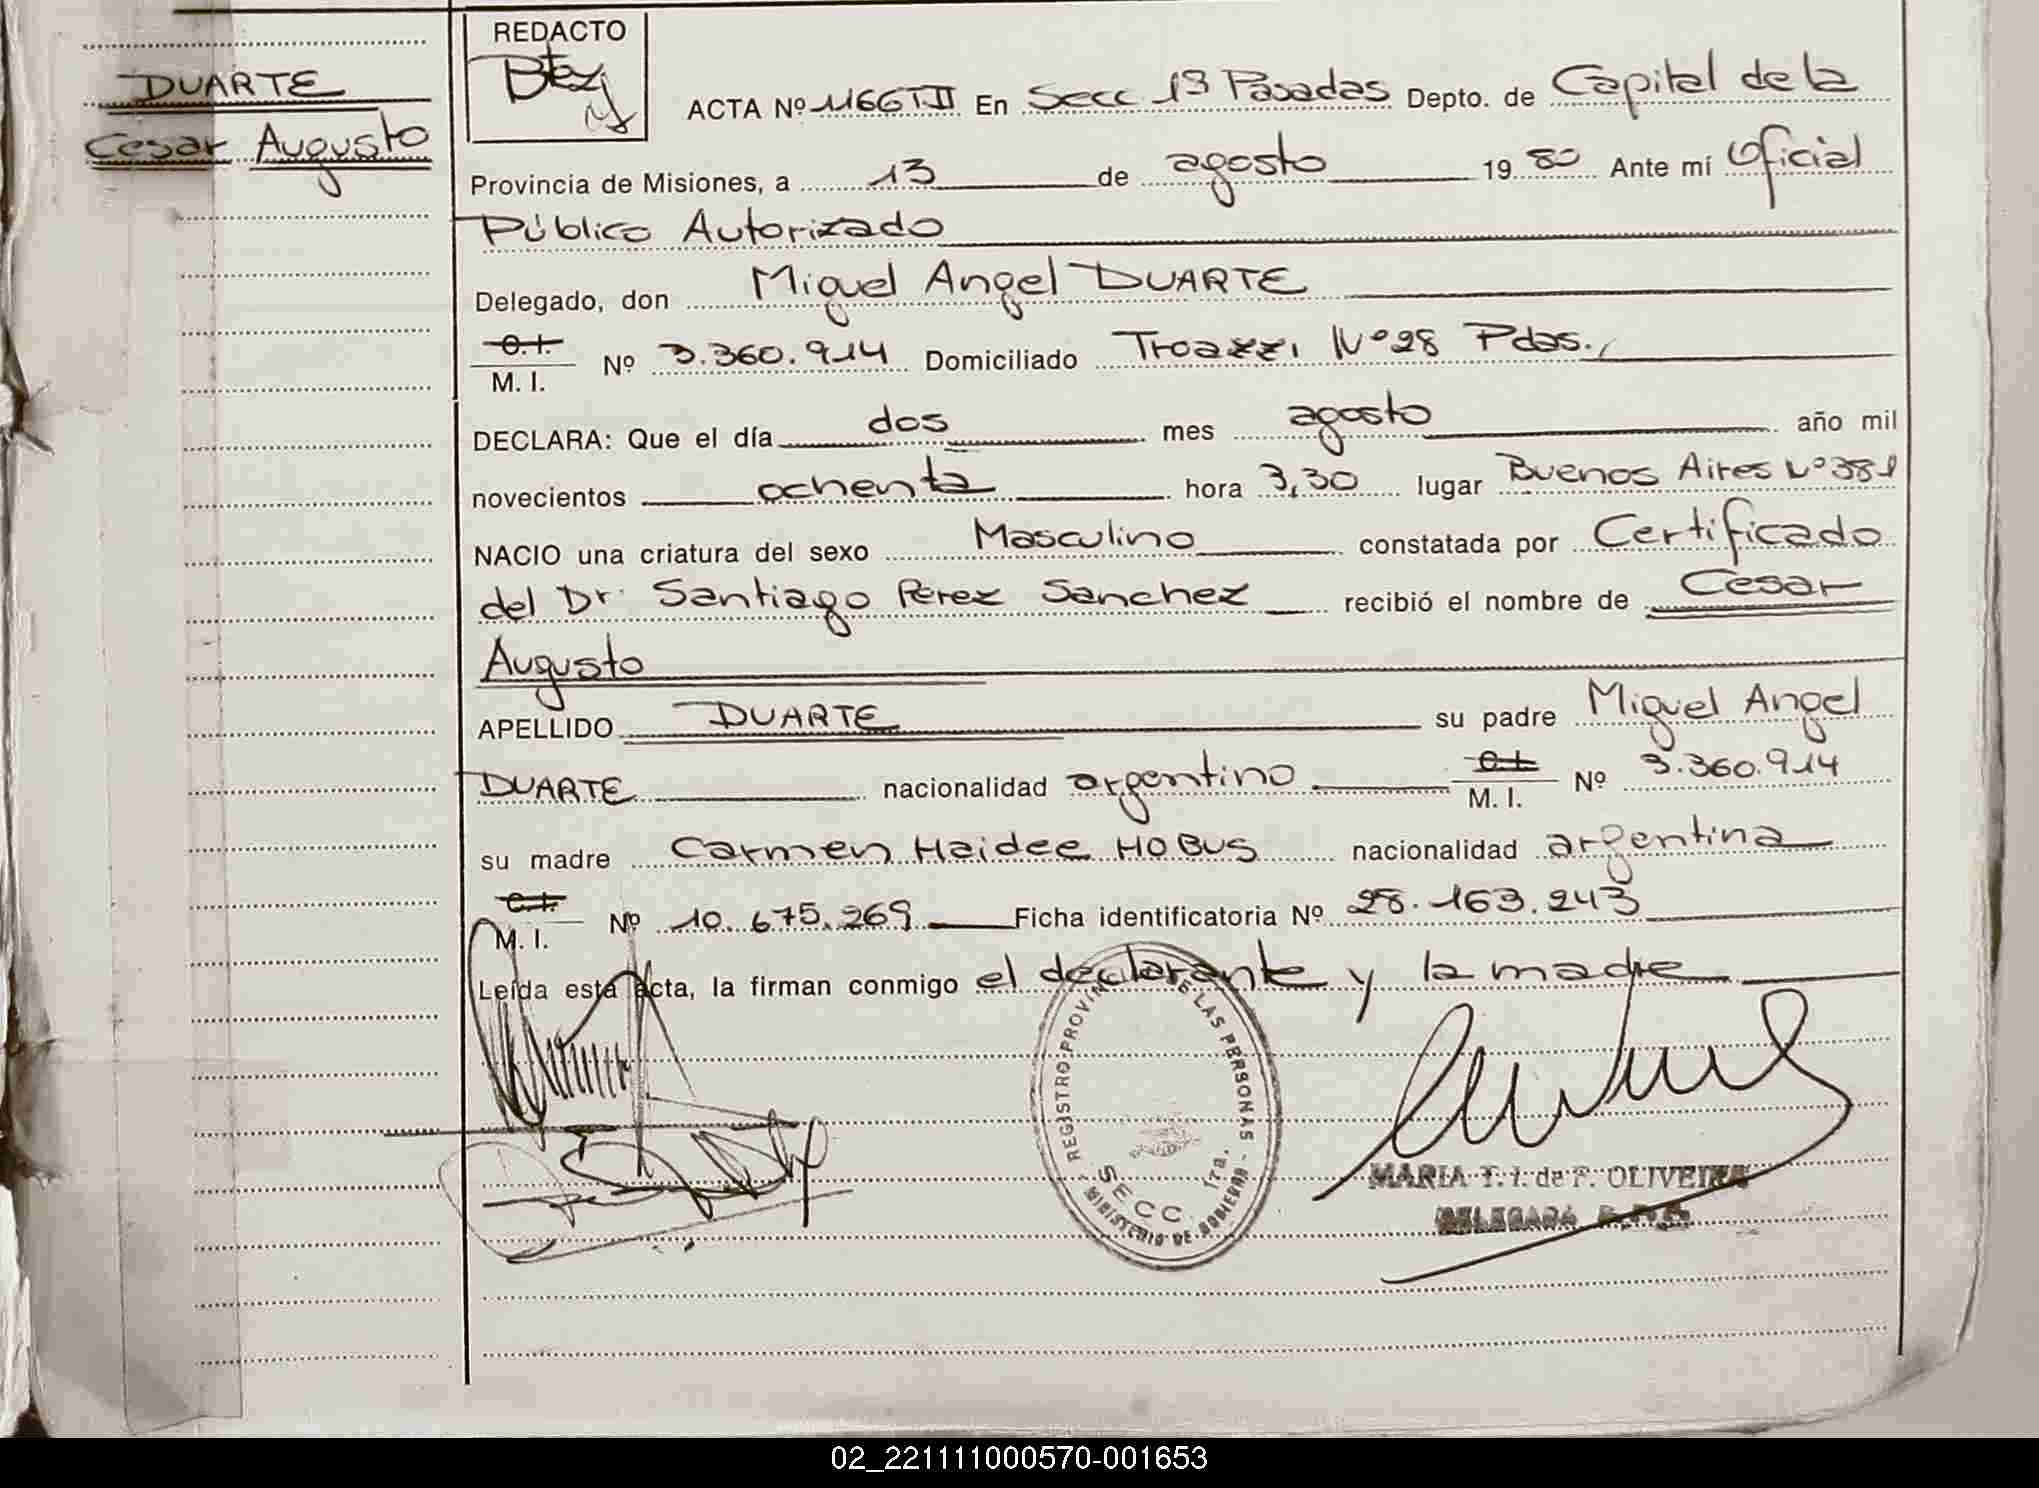 DUARTE
Cesar Augusto
REDACTO
ACTA Nº 1166 TII En Secc 13 Pasadas Depto. de Capital de la
Provincia de Misiones, a 13 de agosto 1980 Ante mí Oficial
Público Autorizado
Delegado, don Miguel Angel DUARTE
C.I. M. I. Nº 3.360.914 Domiciliado Troazzi Nº 28 Pdas.,
DECLARA: Que el día dos mes agosto año mil
novecientos ochenta hora 3,30 lugar Buenos Aires Nº 381
NACIO una criatura del sexo Masculino constatada por Certificado
del Dr. Santiago Perez Sanchez recibió el nombre de Cesar
Augusto
APELLIDO DUARTE su padre Miguel Angel
DUARTE nacionalidad argentino C.I. M. I. Nº 3.360.914
su madre Carmen Haidee HOBUS nacionalidad argentina
C.I. M. I. Nº 10.675.269 Ficha identificatoria Nº 28.163.243
Leída esta acta, la firman conmigo el declarante y la madre
REGISTRO PROVIN DE LAS PERSONAS
SECC. 17a.
MINISTERIO DE GOBIERNO
MARIA T. I. de F. OLIVEIRA
DELEGADA
02_221111000570-001653